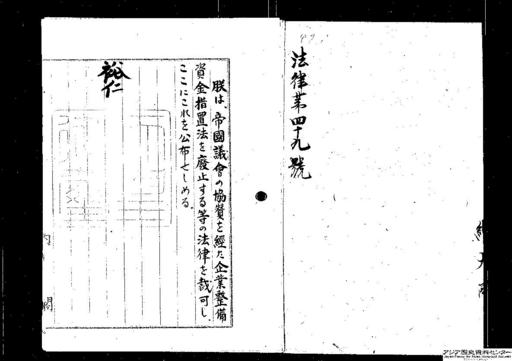 法律第四十九號
朕は、帝國議會の協賛を経た企業整備
資金措置法を廢止する等の法律を裁可し、
ここにこれを公布せしめる。
裕仁
内閣
アジア歴史資料センター